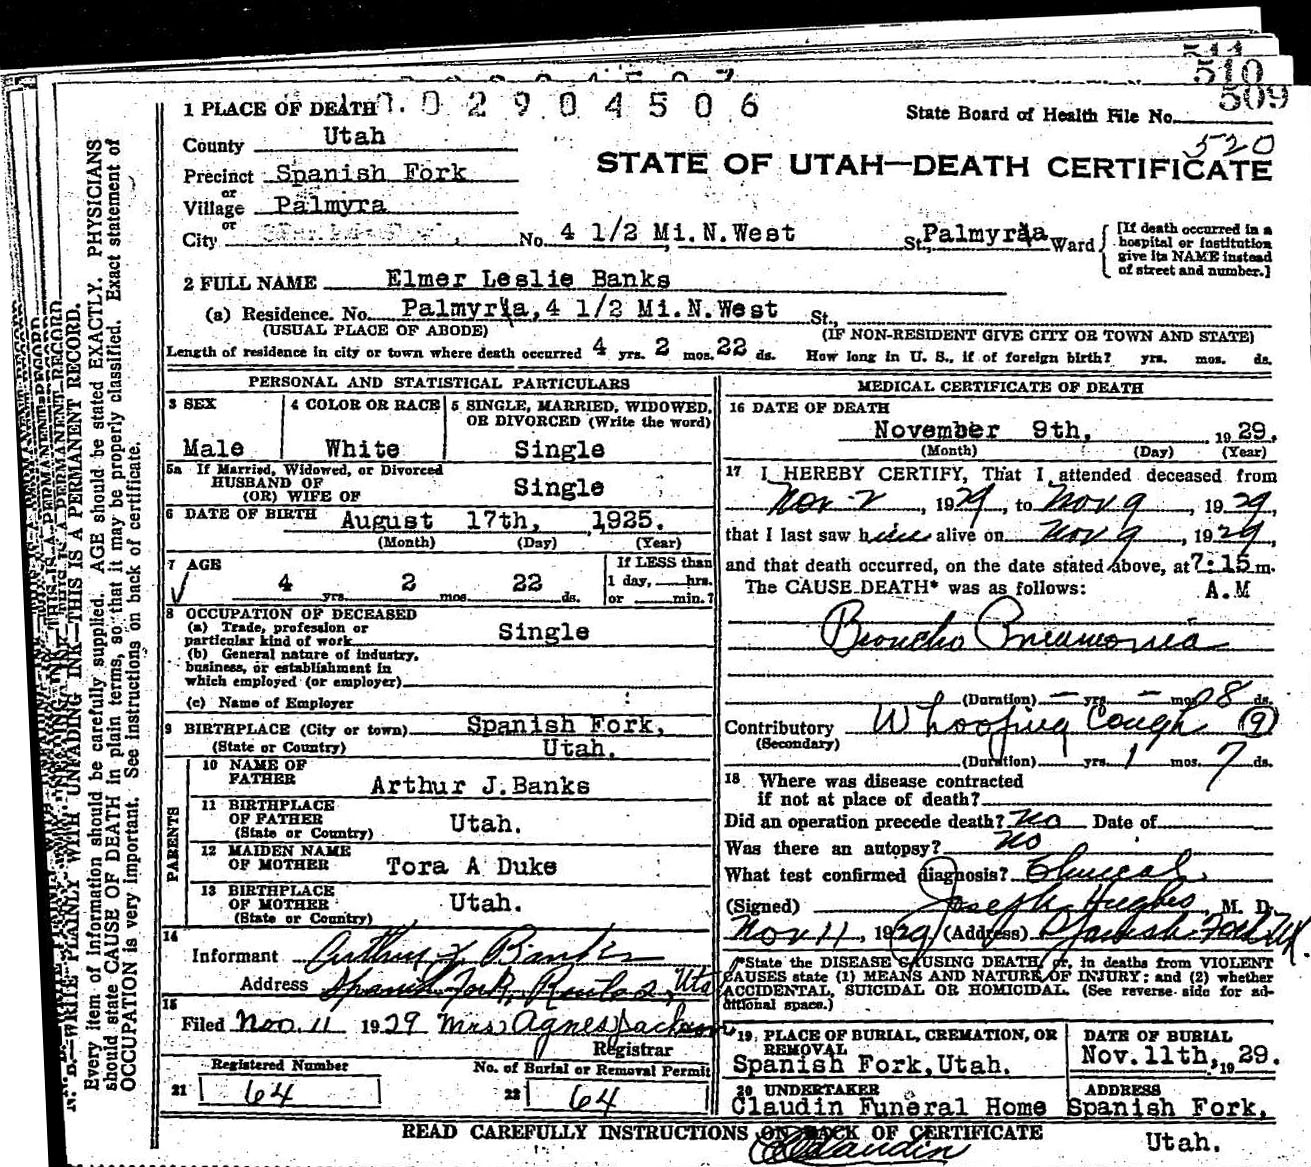 511
510
509
1 PLACE OF DEATH 0 0 2 9 0 4 5 0 6 State Board of Health File No.
520
County Utah
STATE OF UTAH—DEATH CERTIFICATE
Precinct Spanish Fork
or
Village Palmyra
or
City No. 4 1/2 Mi.N.West St., Palmyra Ward
[If death occurred in a
hospital or institution
give its NAME instead
of street and number.]
2 FULL NAME Elmer Leslie Banks
(a) Residence. No. Palmyra, 4 1/2 Mi.N.West St.,
(USUAL PLACE OF ABODE) (IF NON-RESIDENT GIVE CITY OR TOWN AND STATE)
Length of residence in city or town where death occurred 4 yrs. 2 mos. 22 ds. How long in U. S., if of foreign birth? yrs. mos. ds.
PERSONAL AND STATISTICAL PARTICULARS
3 SEX 4 COLOR OR RACE 5 SINGLE, MARRIED, WIDOWED,
OR DIVORCED (Write the word)
Male White Single
5a If Married, Widowed, or Divorced
HUSBAND OF
(OR) WIFE OF Single
6 DATE OF BIRTH August 17th, 1925.
(Month) (Day) (Year)
7 AGE If LESS than
4 yrs. 2 mos. 22 ds. 1 day, hrs.
or min.?
8 OCCUPATION OF DECEASED
(a) Trade, profession or
particular kind of work Single
(b) General nature of industry,
business, or establishment in
which employed (or employer)
(c) Name of Employer
9 BIRTHPLACE (City or town) Spanish Fork,
(State or Country) Utah.
PARENTS
10 NAME OF
FATHER Arthur J. Banks
11 BIRTHPLACE
OF FATHER
(State or Country) Utah.
12 MAIDEN NAME
OF MOTHER Tora A Duke
13 BIRTHPLACE
OF MOTHER
(State or Country) Utah.
14
Informant Arthur J. Banks
Address Spanish Fork, Route 2, Uta
15
Filed Nov. 11 1929 Mrs Agnes Jackson
Registrar
Registered Number No. of Burial or Removal Permit
21 64 22 64
MEDICAL CERTIFICATE OF DEATH
16 DATE OF DEATH
November 9th, 1929.
(Month) (Day) (Year)
17 I HEREBY CERTIFY, That I attended deceased from
Nov-2, 1929, to Nov 9, 1929,
that I last saw him alive on Nov 9, 1929,
and that death occurred, on the date stated above, at 7:15 m.
The CAUSE DEATH* was as follows: A.M
Broncho Pneumonia
(Duration) — yrs. — mos. 08 ds.
Contributory Whooping Cough (9)
(Secondary)
(Duration) yrs. 1 mos. 7 ds.
18 Where was disease contracted
if not at place of death?
Did an operation precede death? No Date of
Was there an autopsy? No
What test confirmed diagnosis? Clinical
(Signed) Joseph Hughes, M. D.
Nov 11, 1929 (Address) Spanish Fork Ut.
*State the DISEASE CAUSING DEATH, or, in deaths from VIOLENT
CAUSES state (1) MEANS AND NATURE OF INJURY; and (2) whether
ACCIDENTAL, SUICIDAL OR HOMICIDAL. (See reverse side for ad-
ditional space.)
19 PLACE OF BURIAL, CREMATION, OR
REMOVAL
Spanish Fork, Utah.
DATE OF BURIAL
Nov. 11th, 1929.
20 UNDERTAKER
Claudin Funeral Home
ADDRESS
Spanish Fork,
Utah.
READ CAREFULLY INSTRUCTIONS ON BACK OF CERTIFICATE
N. B.—WRITE PLAINLY WITH UNFADING INK—THIS IS A PERMANENT RECORD.
Every item of information should be carefully supplied. AGE should be stated EXACTLY. PHYSICIANS
should state CAUSE OF DEATH in plain terms, so that it may be properly classified. Exact statement of
OCCUPATION is very important. See instructions on back of certificate.